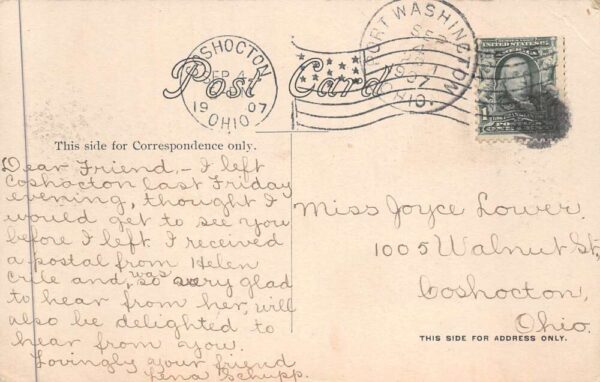 COSHOCTON
SEP 4
1907
OHIO
PORT WASHINGTON
SEP
1907
OHIO.
UNITED STATES
Post Card
This side for Correspondence only.
Dear Friend,- I left
Coshocton last Friday
evening, thought I
would get to see you
before I left. I received
a postal from Helen
Crile and, was so very glad
to hear from her, will
also be delighted to
hear from you.
Lovingly your friend
Lena Schupp.
Miss Joyce Lower.
1005 Walnut St,
Coshocton,
Ohio.
THIS SIDE FOR ADDRESS ONLY.